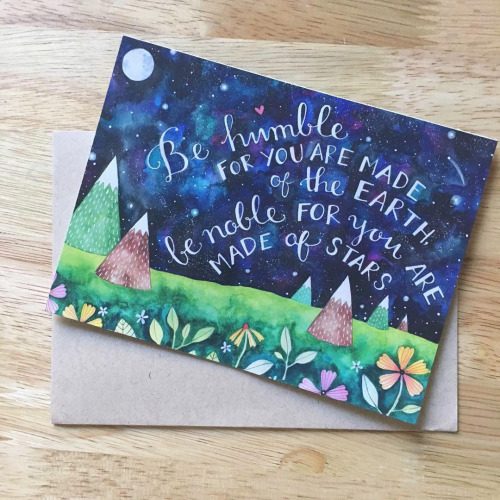 Be humble
FOR YOU ARE MADE
of the EARTH,
be noble FOR you ARE
MADE of STARS